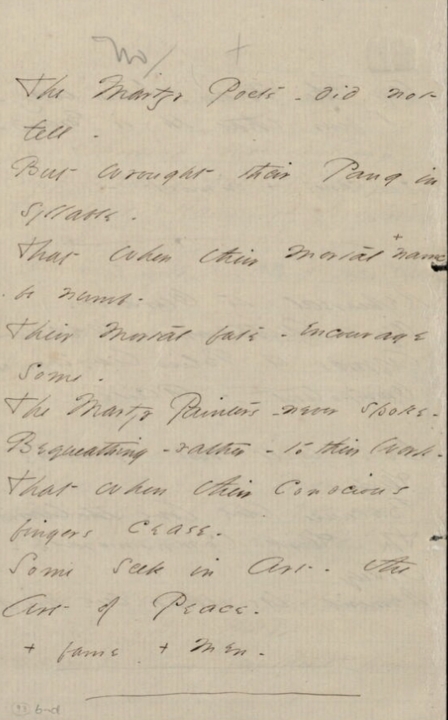 The Martyr Poets - did not
tell -
But wrought their Pang in
syllable -
That when their mortal + name
be numb -
Their mortal fate - encourage
Some -
The Martyr Painters - never spoke -
Bequeathing - rather - to their Work -
That when their conscious
fingers cease -
Some seek in Art - the
Art of Peace -
+ fame + Men -